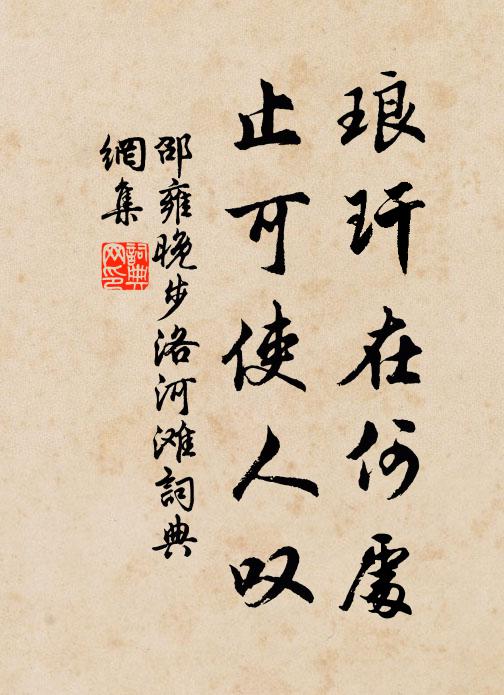 琅玕在何處
止可使人叹
邵雍晚步洛河滩詞典
網集
詞典
网印